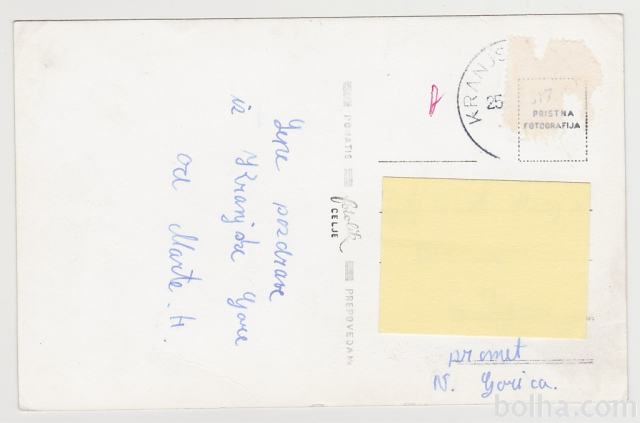 Lepe pozdrave
iz Kranjske Gore
od Marte. H.
PONATIS
fotolik
CELJE
PREPOVEDAN
KRANJS
25
517
PRISTNA
FOTOGRAFIJA
promet
N. Gorica.
bolha.com